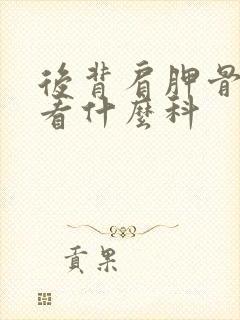 後背肩胛骨
看什麼科
貢果